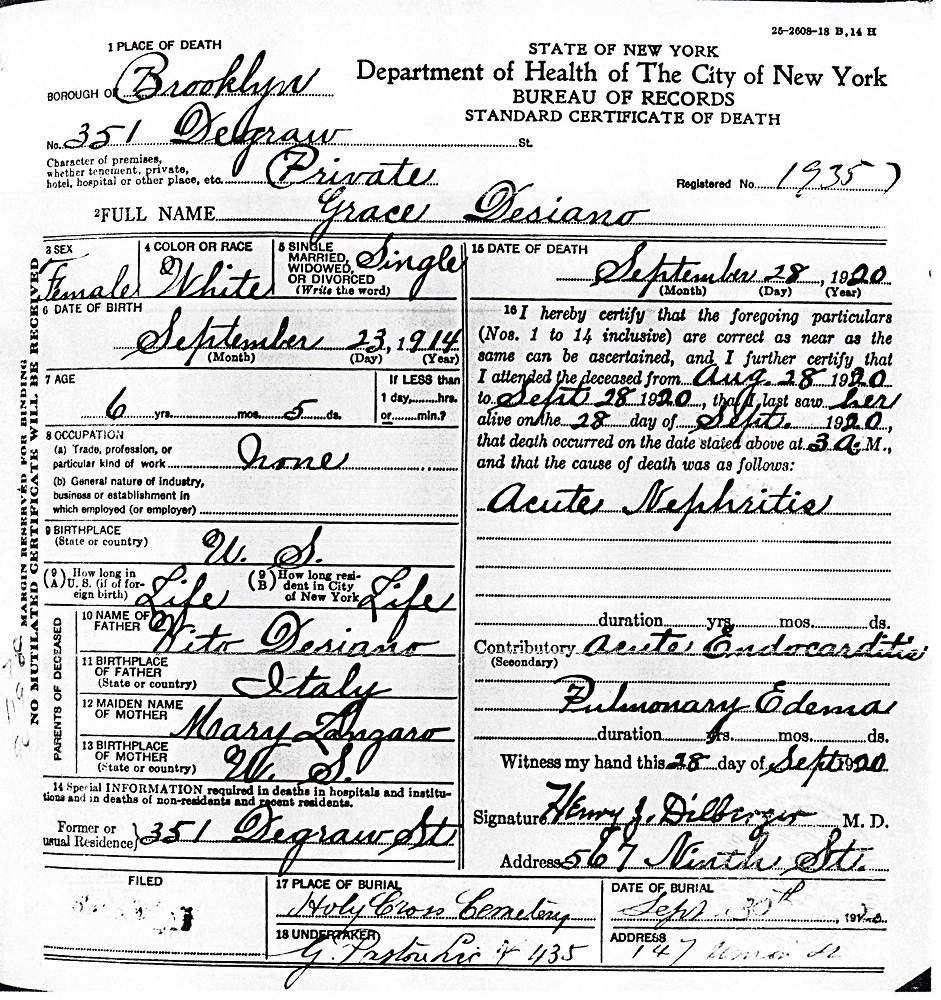 25-2608-18 B, 14 H
1 PLACE OF DEATH
STATE OF NEW YORK
Department of Health of The City of New York
BUREAU OF RECORDS
STANDARD CERTIFICATE OF DEATH
BOROUGH OF Brooklyn
No. 351 Degraw St.
Character of premises,
whether tenement, private,
hotel, hospital or other place, etc. Private
Registered No. 19357
2 FULL NAME Grace Desiano
MARGIN RESERVED FOR BINDING
NO MUTILATED CERTIFICATE WILL BE RECEIVED
3 SEX
Female
4 COLOR OR RACE
White
5 SINGLE
MARRIED,
WIDOWED,
OR DIVORCED
(Write the word)
Single
6 DATE OF BIRTH
September 23, 1914
(Month) (Day) (Year)
7 AGE
6 yrs. mos. 5 ds.
If LESS than
1 day, hrs.
or min.?
8 OCCUPATION
(a) Trade, profession, or
particular kind of work None
(b) General nature of industry,
business or establishment in
which employed (or employer)
9 BIRTHPLACE
(State or country) U. S.
(9 A) How long in
U. S. (if of for-
eign birth) Life
(9 B) How long resi-
dent in City
of New York Life
PARENTS OF DECEASED
10 NAME OF
FATHER Vito Desiano
11 BIRTHPLACE
OF FATHER
(State or country) Italy
12 MAIDEN NAME
OF MOTHER Mary Zangaro
13 BIRTHPLACE
OF MOTHER
(State or country) U. S.
14 Special INFORMATION required in deaths in hospitals and institu-
tions and in deaths of non-residents and recent residents.
Former or
usual Residence } 351 Degraw St
15 DATE OF DEATH
September 28, 1920
(Month) (Day) (Year)
16 I hereby certify that the foregoing particulars
(Nos. 1 to 14 inclusive) are correct as near as the
same can be ascertained, and I further certify that
I attended the deceased from Aug. 28 1920
to Sept 28 1920, that I last saw her
alive on the 28 day of Sept. 1920,
that death occurred on the date stated above at 3 A. M.,
and that the cause of death was as follows:
Acute Nephritis
duration yrs. mos. ds.
Contributory Acute Endocarditis
(Secondary)
Pulmonary Edema
duration yrs. mos. ds.
Witness my hand this 28 day of Sept 1920
Signature Henry J. Dilberger M. D.
Address 567 Ninth St.
FILED
17 PLACE OF BURIAL
Holy Cross Cemetery
DATE OF BURIAL
Sept. 30th, 19
18 UNDERTAKER
G. Pastore Lic # 435
ADDRESS
147 Union St